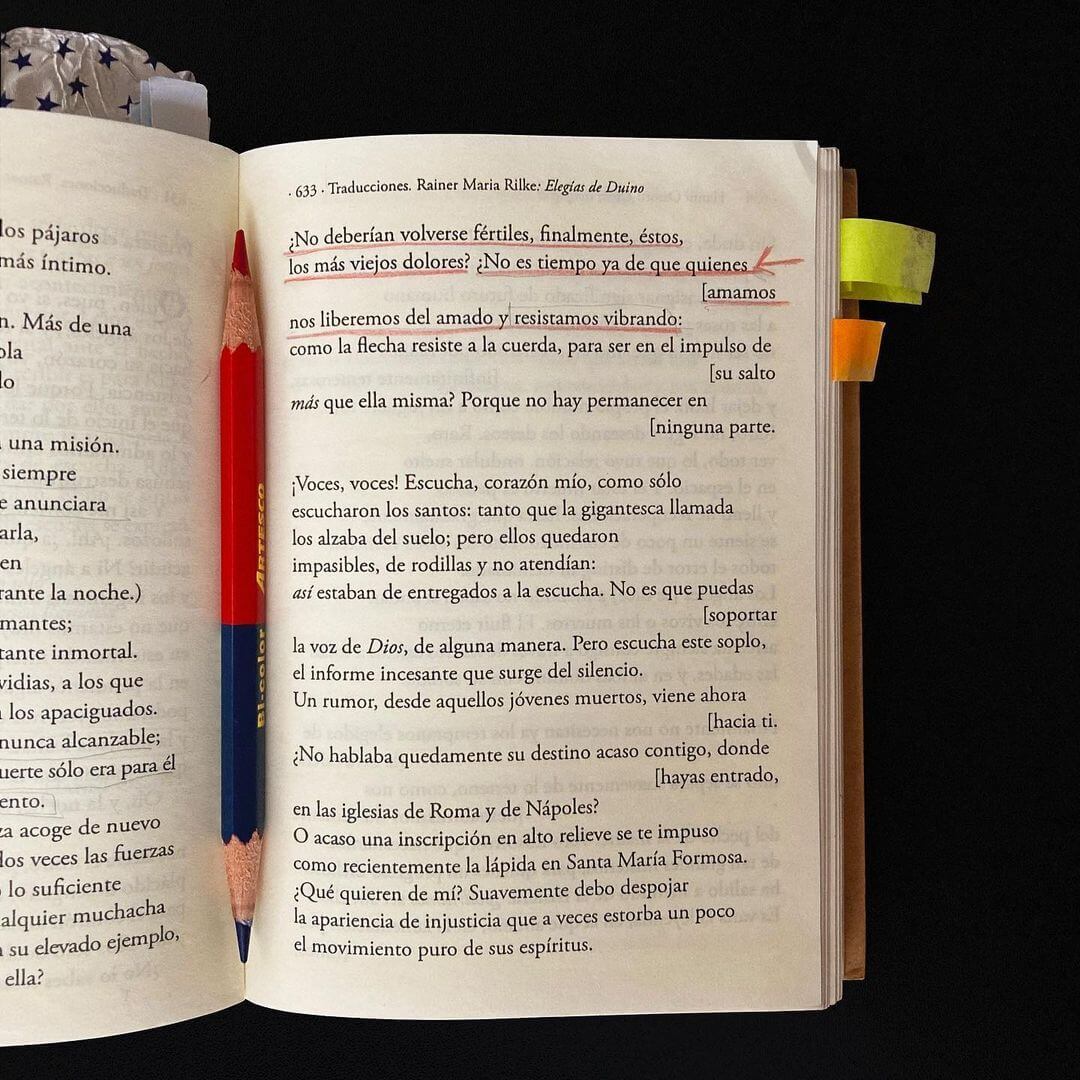 los pájaros
más íntimo.
Más de una
una misión.
siempre
anunciara
en
la noche.)
inmortal.
a los que
los apaciguados.
nunca alcanzable;
sólo era para él
acoge de nuevo
dos veces las fuerzas
lo suficiente
muchacha
su elevado ejemplo,
ella?
Bi-color ARTESCO
. 633 · Traducciones. Rainer Maria Rilke: Elegías de Duino
¿No deberían volverse fértiles, finalmente, éstos,
los más viejos dolores? ¿No es tiempo ya de que quienes
[amamos
nos liberemos del amado y resistamos vibrando:
como la flecha resiste a la cuerda, para ser en el impulso de
[su salto
más que ella misma? Porque no hay permanecer en
[ninguna parte.
¡Voces, voces! Escucha, corazón mío, como sólo
escucharon los santos: tanto que la gigantesca llamada
los alzaba del suelo; pero ellos quedaron
impasibles, de rodillas y no atendían:
así estaban de entregados a la escucha. No es que puedas
[soportar
la voz de Dios, de alguna manera. Pero escucha este soplo,
el informe incesante que surge del silencio.
Un rumor, desde aquellos jóvenes muertos, viene ahora
[hacia ti.
¿No hablaba quedamente su destino acaso contigo, donde
[hayas entrado,
en las iglesias de Roma y de Nápoles?
O acaso una inscripción en alto relieve se te impuso
como recientemente la lápida en Santa María Formosa.
¿Qué quieren de mí? Suavemente debo despojar
la apariencia de injusticia que a veces estorba un poco
el movimiento puro de sus espíritus.